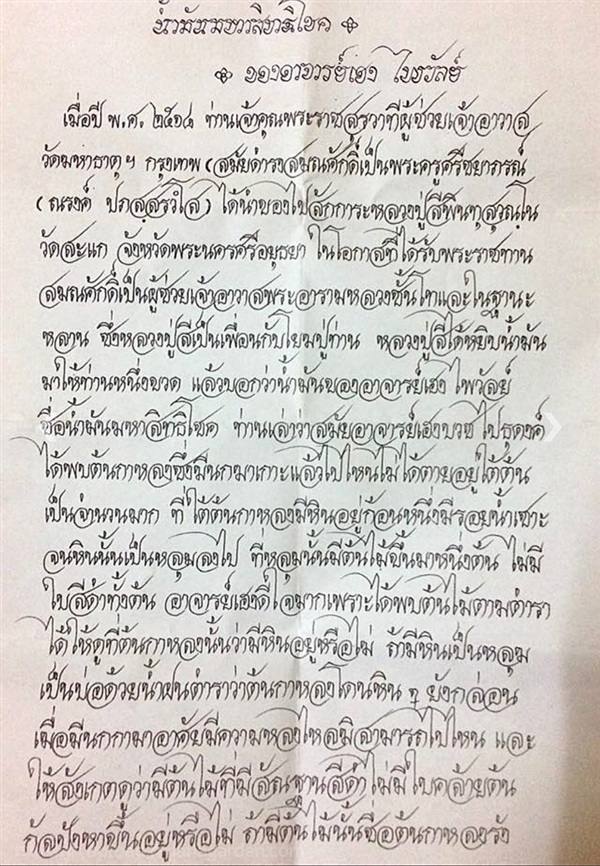 น้ำมันมหาสิทธิโชค
ของอาจารย์เฮง ไพรวัลย์
เมื่อปี พ.ศ. ๒๕๑๘ ท่านเจ้าคุณพระราชสุรวาทีผู้ช่วยเจ้าอาวาส
วัดมหาธาตุฯ กรุงเทพ (สมัยดำรงสมณศักดิ์เป็นพระครูศรีชยาภรณ์
(ณรงค์ ปภสฺสรวํโส) ได้นำของไปสักการะหลวงปู่สีพินทสุวณฺโน
วัดสะแก จังหวัดพระนครศรีอยุธยา ในโอกาสที่ได้รับพระราชทาน
สมณศักดิ์เป็นผู้ช่วยเจ้าอาวาสพระอารามหลวงชั้นโทและในฐานะ
หลาน ซึ่งหลวงปู่สีเป็นเพื่อนกับโยมปู่ท่าน หลวงปู่สีได้หยิบน้ำมัน
มาให้ท่านหนึ่งขวด แล้วบอกว่าน้ำมันของอาจารย์เฮง ไพวัลย์
ชื่อน้ำมันมหาสิทธิโชค ท่านเล่าว่าสมัยอาจารย์เฮงบวช ไปธุดงค์
ได้พบต้นกาหลงซึ่งมีนกมาเกาะแล้วไปไหนไม่ได้ตายอยู่ใต้ต้น
เป็นจำนวนมาก ที่ใต้ต้นกาหลงมีหินอยู่ก้อนหนึ่งมีรอยน้ำเซาะ
จนหินนั้นเป็นหลุมลงไป ที่หลุมนั้นมีต้นไม้ขึ้นมาหนึ่งต้น ไม่มี
ใบสีดำทั้งต้น อาจารย์เฮงดีใจมากเพราะได้พบต้นไม้ตามตำรา
ได้ให้ดูที่ต้นกาหลงนั้นว่ามีหินอยู่หรือไม่ ถ้ามีหินเป็นหลุม
เป็นบ่อด้วยน้ำฝนตำราว่าต้นกาหลงโดนหิน ๆ ยังกล่อน
เมื่อมีนกกามาอาศัยมีความหลงใหลมิสามารถไปไหน และ
ให้สังเกตดูว่ามีต้นไม้ที่มีสัณฐานสีดำไม่มีใบคล้ายต้น
กัลปังหาขึ้นอยู่หรือไม่ ถ้ามีต้นไม้นั้นชื่อต้นกาหลงรัง